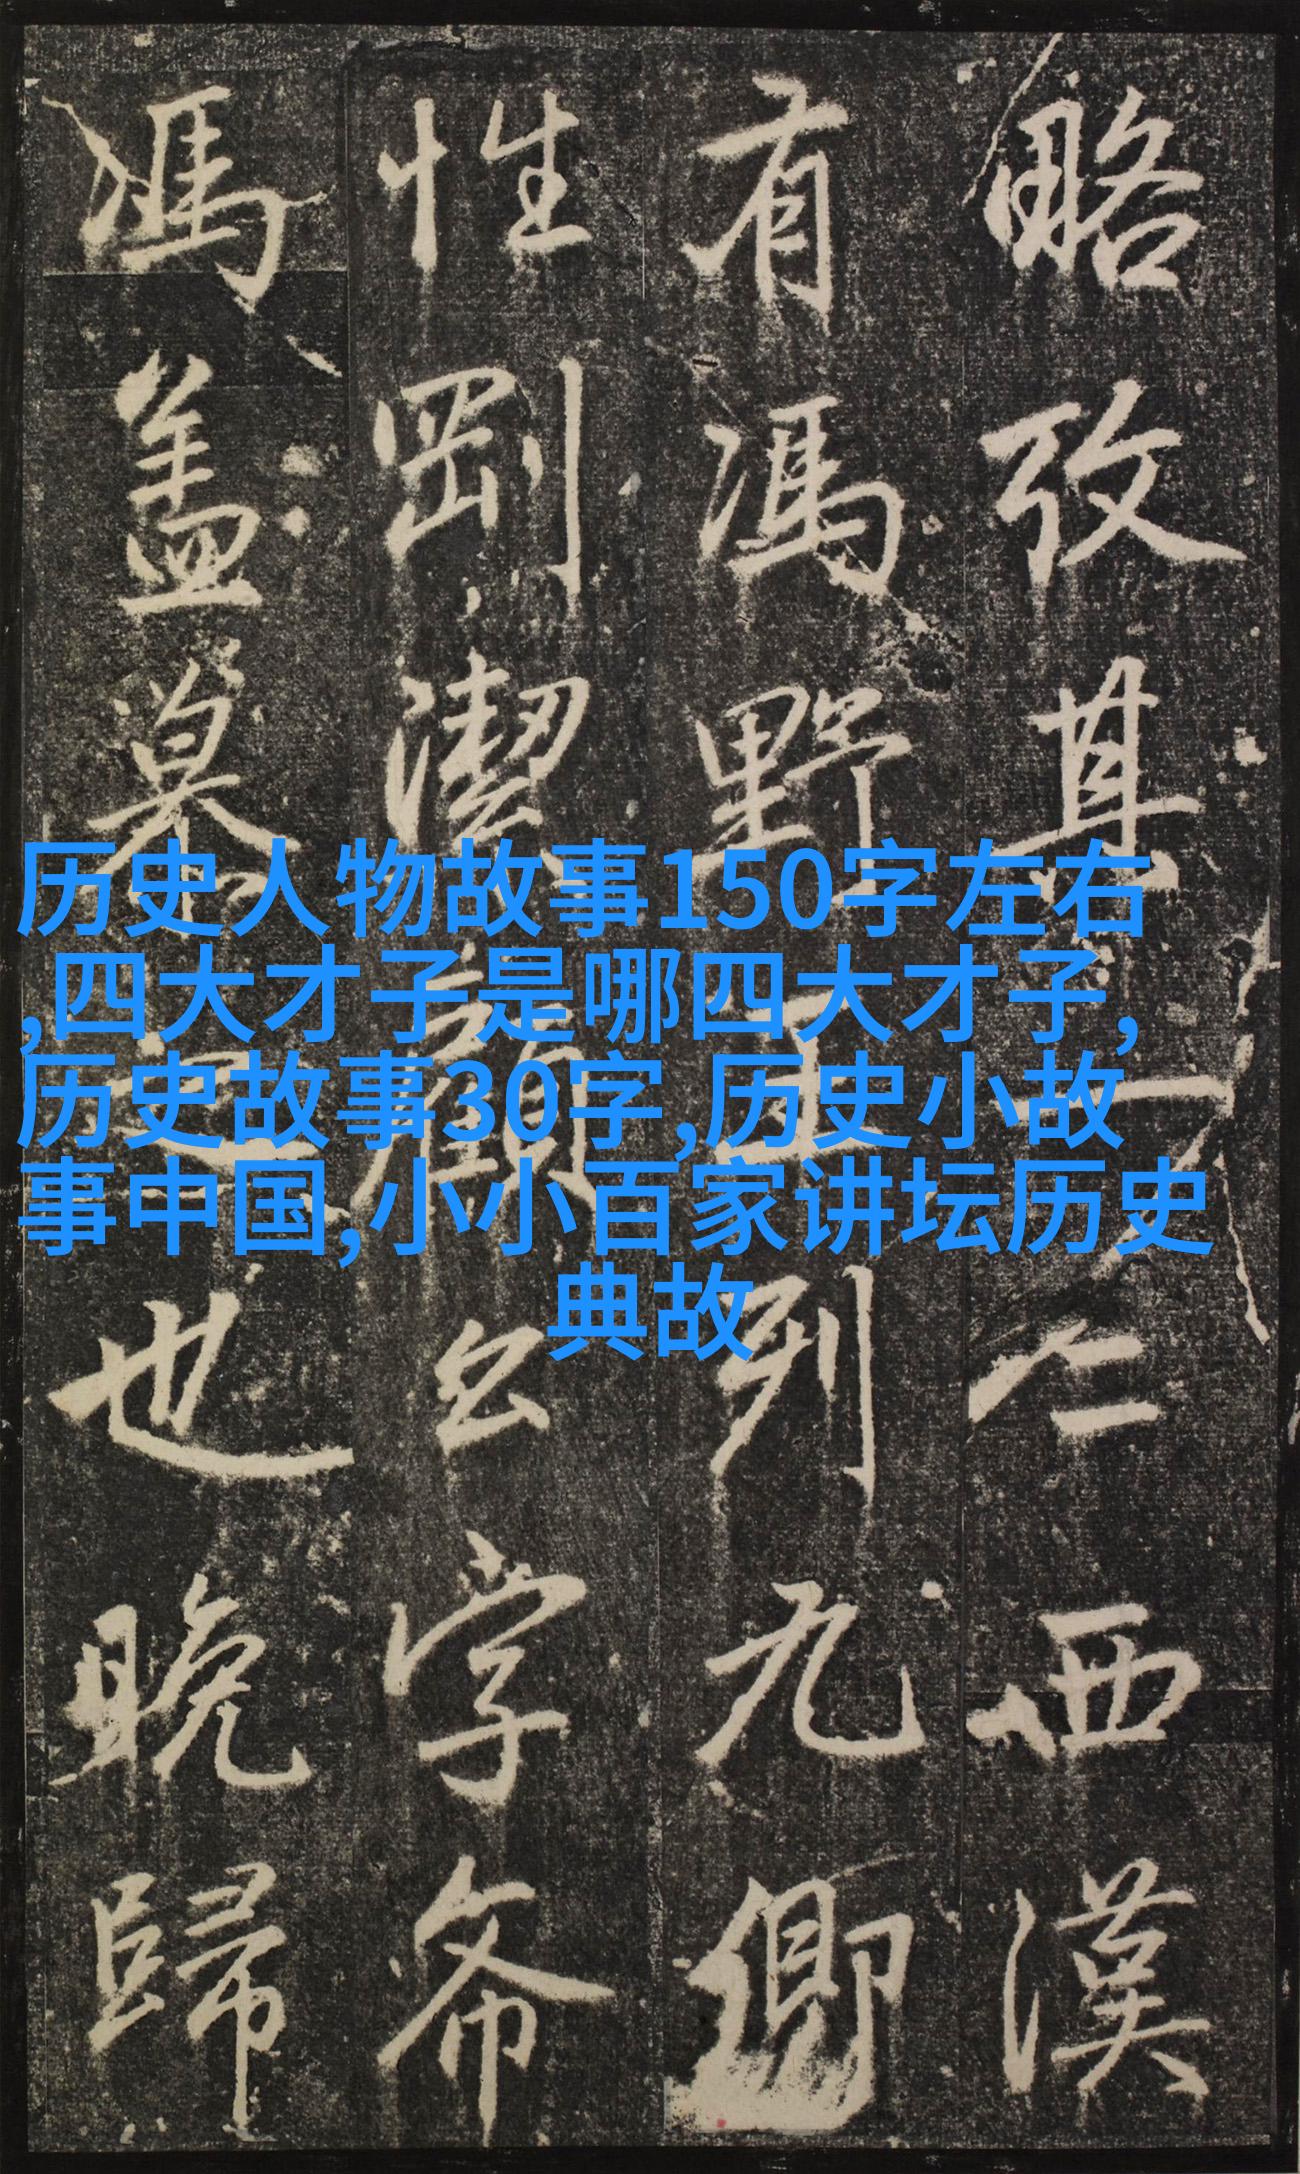 略攷其一二西漢
有馮野王列九卿
性剛潔顧公字希
馮蓋慕之也晚歸
历史人物故事150字左右
,四大才子是哪四大才子,
历史故事30字,历史小故
事中国,小小百家讲坛历史
典故